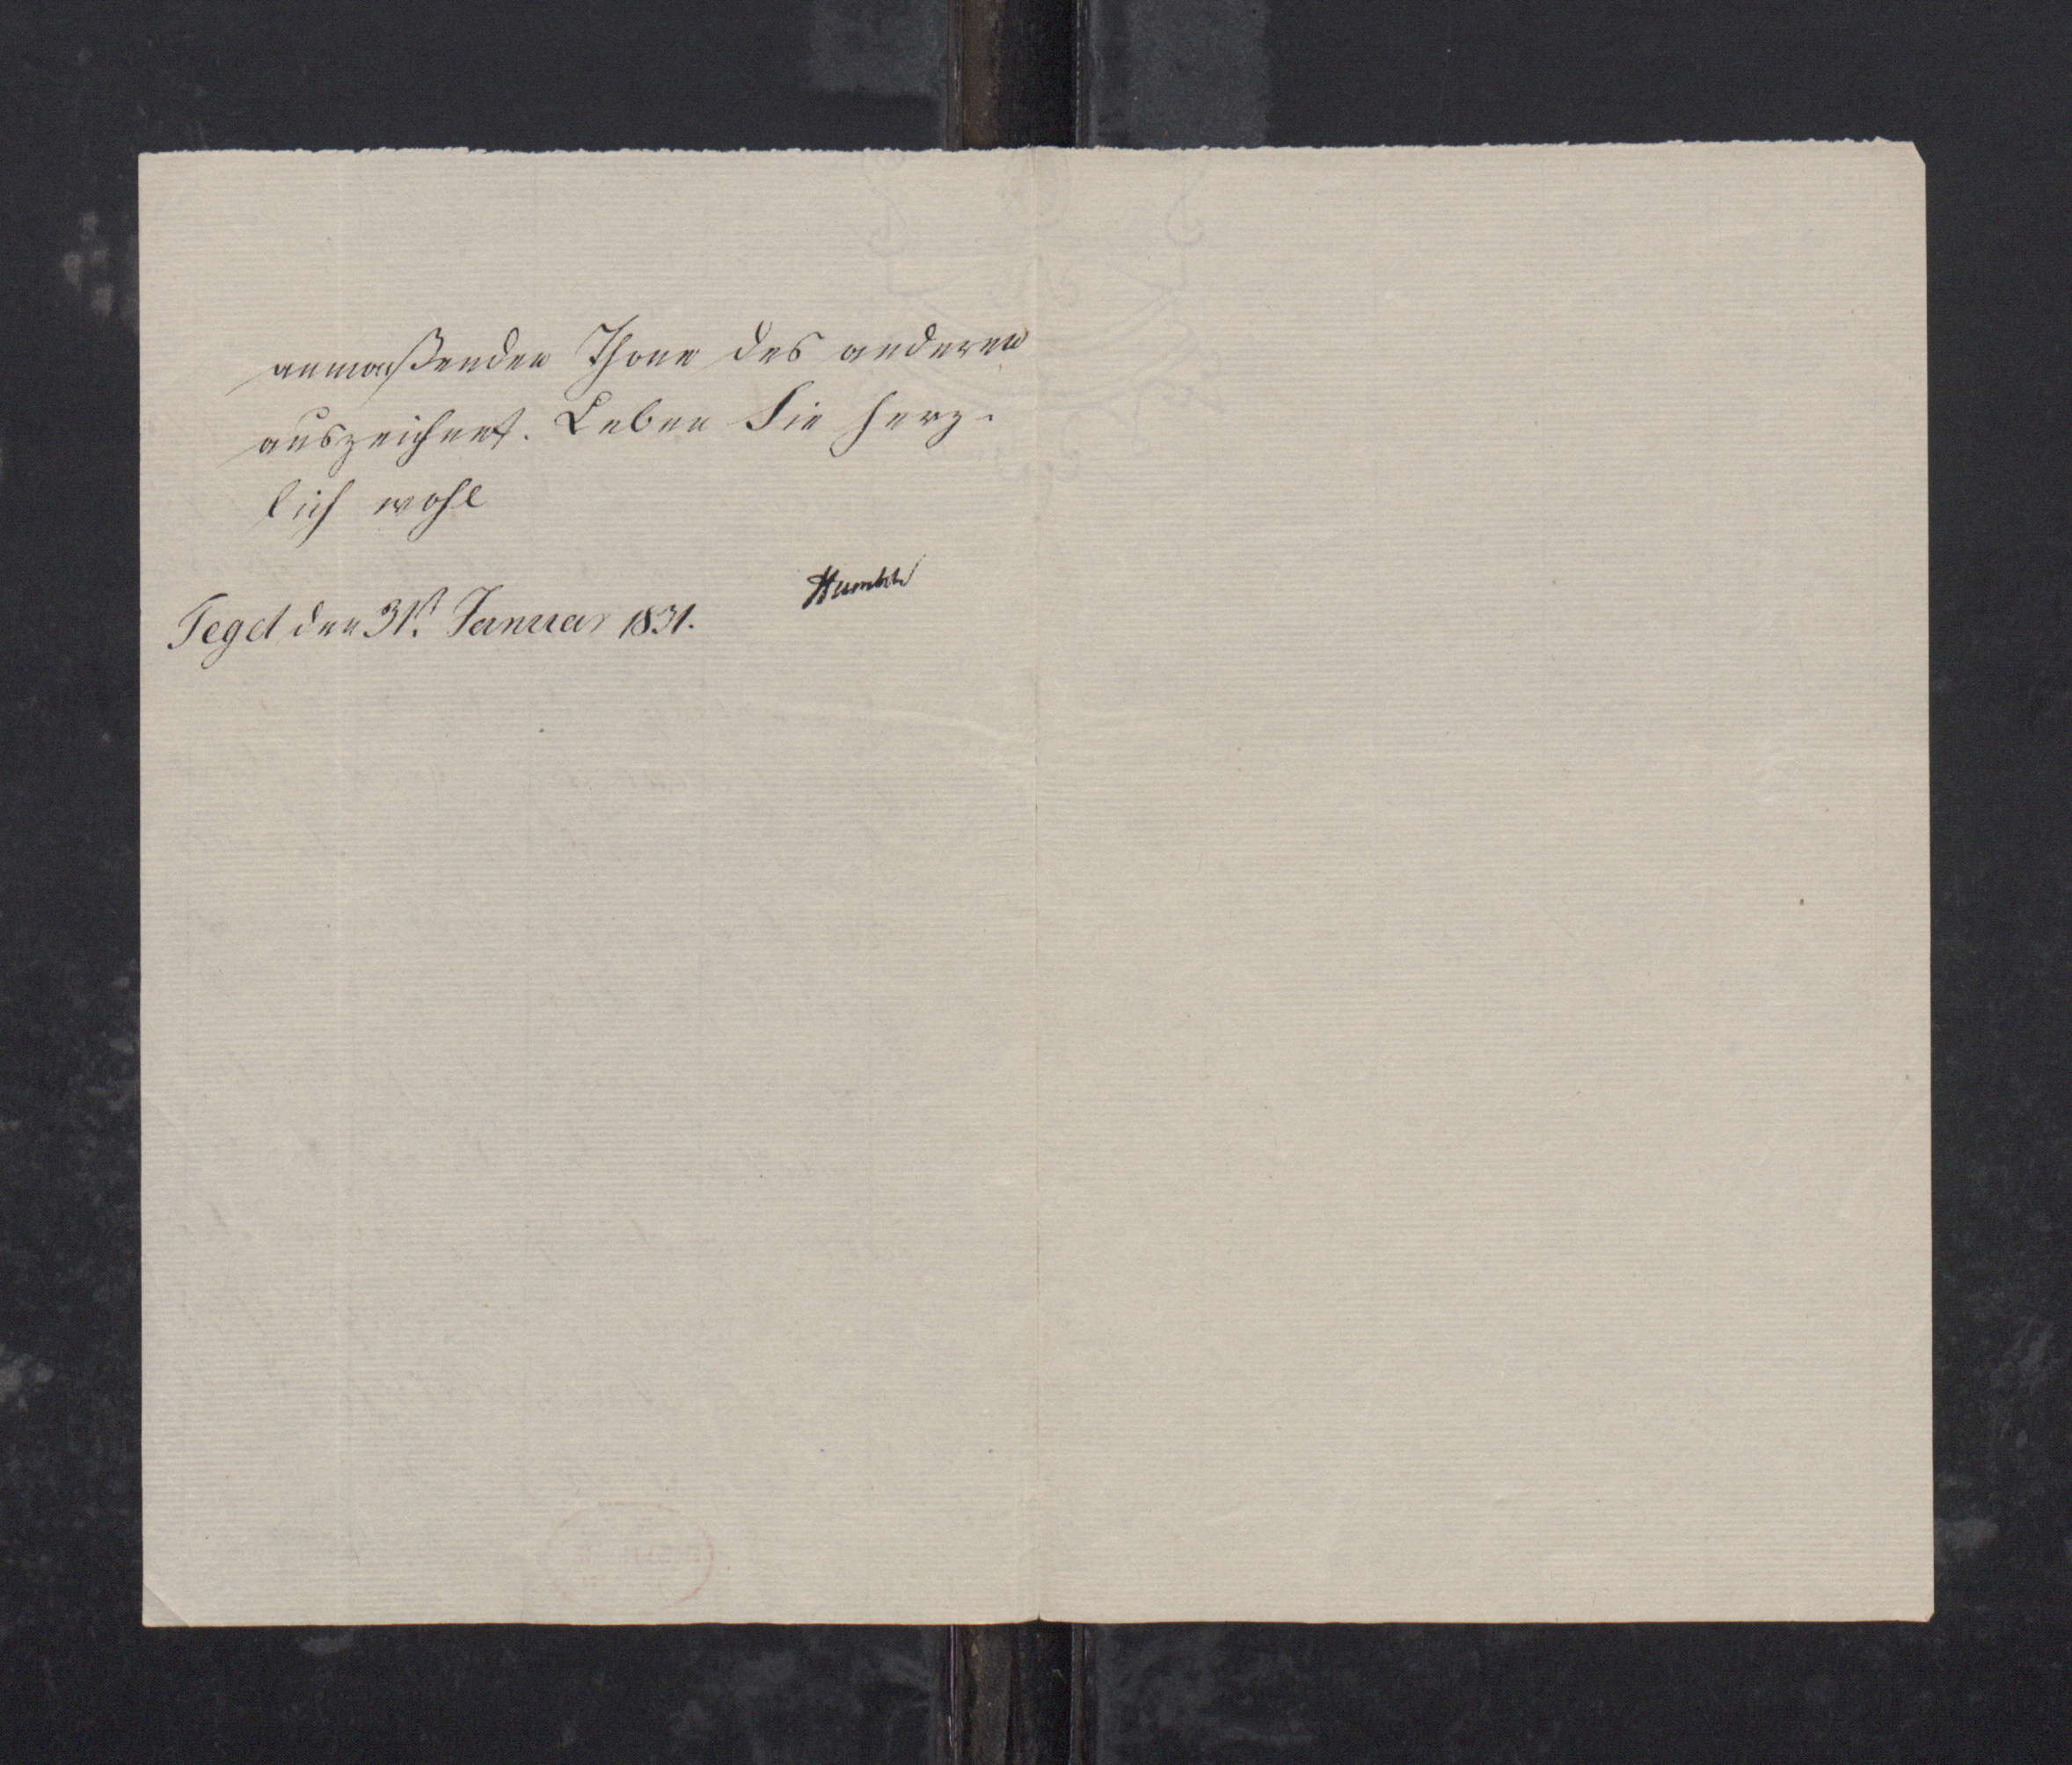 anmaßenden Thone des anderen
auszeichnet. Leben Sie herz-
lich wohl
Humboldt
Tegel den 31st. Januar 1831.